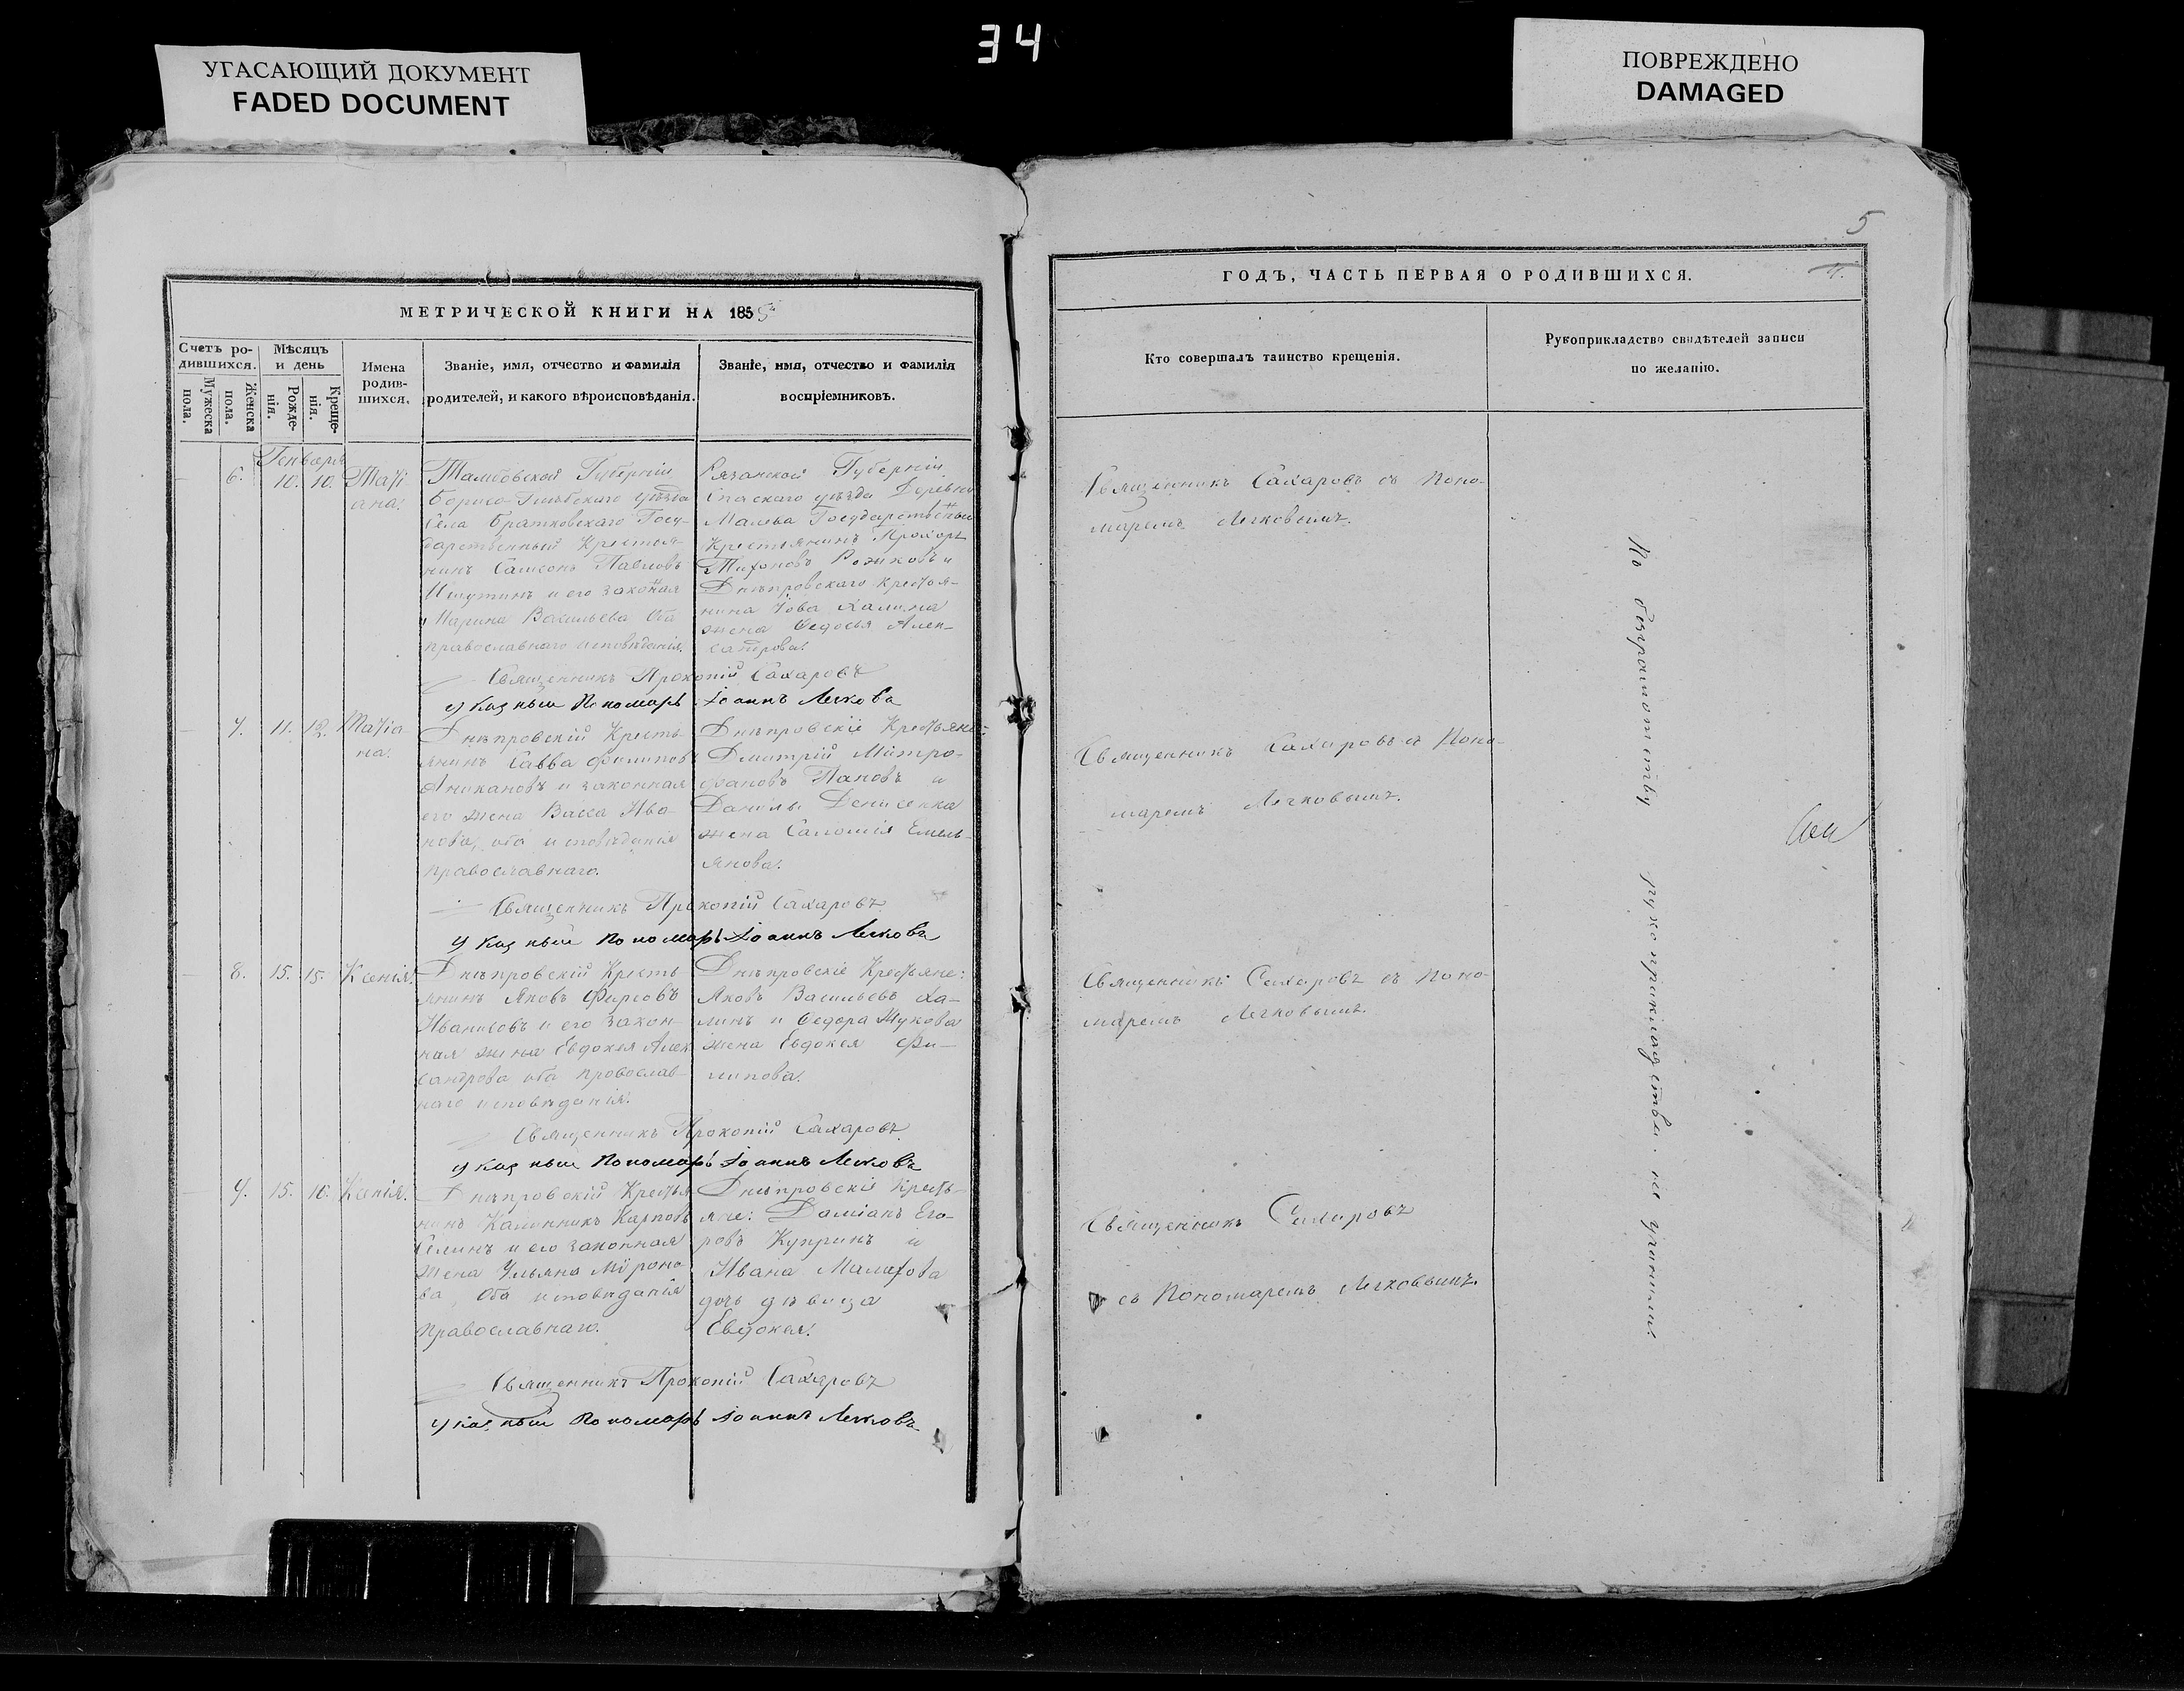 34
УГАСАЮЩИЙ ДОКУМЕНТ
FADED DOCUMENT
ПОВРЕЖДЕНО
DAMAGED
МЕТРИЧЕСКОЙ КНИГИ НА 1855
Счетъ ро-
дившихся.
Мужеска
пола.
Женска
пола.
Мѣсяцъ
и день
Рожде-
нія.
Креще-
нія.
Имена
родив-
шихся.
Званіе, имя, отчество и фамилія
родителей, и какого вѣроисповѣданія.
Званіе, имя, отчество и фамилія
воспріемниковъ.
Генваря
6. 10. 10. Тати
ана.
Тамбовской Губерніи
Борисо-Глебскаго уѣзда
Села Братковскаго Госу-
дарственный Крестья-
нинъ Самсонъ Павловъ
Ишутинъ и его законая
Марина Васильева Оба
православнаго исповѣданія.
Рязанской Губерніи
Спаскаго уѣзда Деревни
Крестьянинъ Прохоръ
Тихоновъ и
Днѣпровскаго крестья-
нина Іова Халина
жена Ѳедосья Алек-
сандрова.
Священникъ Прокопій Сахаровъ
указный Пономарь Іоаннъ Легковъ
7. 11. 12. Татіа
на.
Днѣпровскій Кресть-
янинъ Савва Филиповъ
Аникановъ и законная
его жена Васса Ива-
нова, оба исповѣданія
православнаго.
Днѣпровскіе Крестьяне:
Дмитрій Митро-
фановъ Пановъ и
жена Саломія Емель-
янова.
Священникъ Прокопій Сахаровъ
указный Пономарь Іоаннъ Легковъ
8. 15. 15. Ксенія.
Днѣпровскій Кресть
янинъ Яковъ Фирсовъ
и его закон-
ная жена Евдокея Алек
сандрова оба православ-
наго исповѣданія.
Днѣпровскіе Крестьяне:
Яковъ Васильевъ Ха-
линъ и Ѳедора Жукова
жена Евдокея Фи-
липова.
Священникъ Прокопій Сахаровъ
указный Пономарь Іоаннъ Легковъ
15. Ксенія.
Днѣпровскій Крестья
нинъ Калинникъ Карповъ
Селинъ и его законная
жена Ульяна Мїроно
ва, Оба исповѣданія
Православнаго.
Днѣпровскіе Кресть-
яне: Даміанъ Его-
ровъ Купринъ и
Ивана Малахова
дочь дѣвица
Евдокея.
Священникъ Прокопій Сахаровъ
указный Пономарь Іоаннъ Легковъ
5
4.
ГОДЪ, ЧАСТЬ ПЕРВАЯ О РОДИВШИХСЯ.
Кто совершалъ таинство крещенія.
Рукоприкладство свидѣтелей записи
по желанію.
Священникъ Сахаровъ съ Поно-
маремъ Легковымъ.
Священникъ Сахаровъ съ Поно-
маремъ Легковымъ.
Священникъ Сахаровъ съ Поно-
маремъ Легковымъ.
Священникъ Сахаровъ
съ Пономаремъ Легковымъ.
По безграмотству рукоприкладства не учинили.